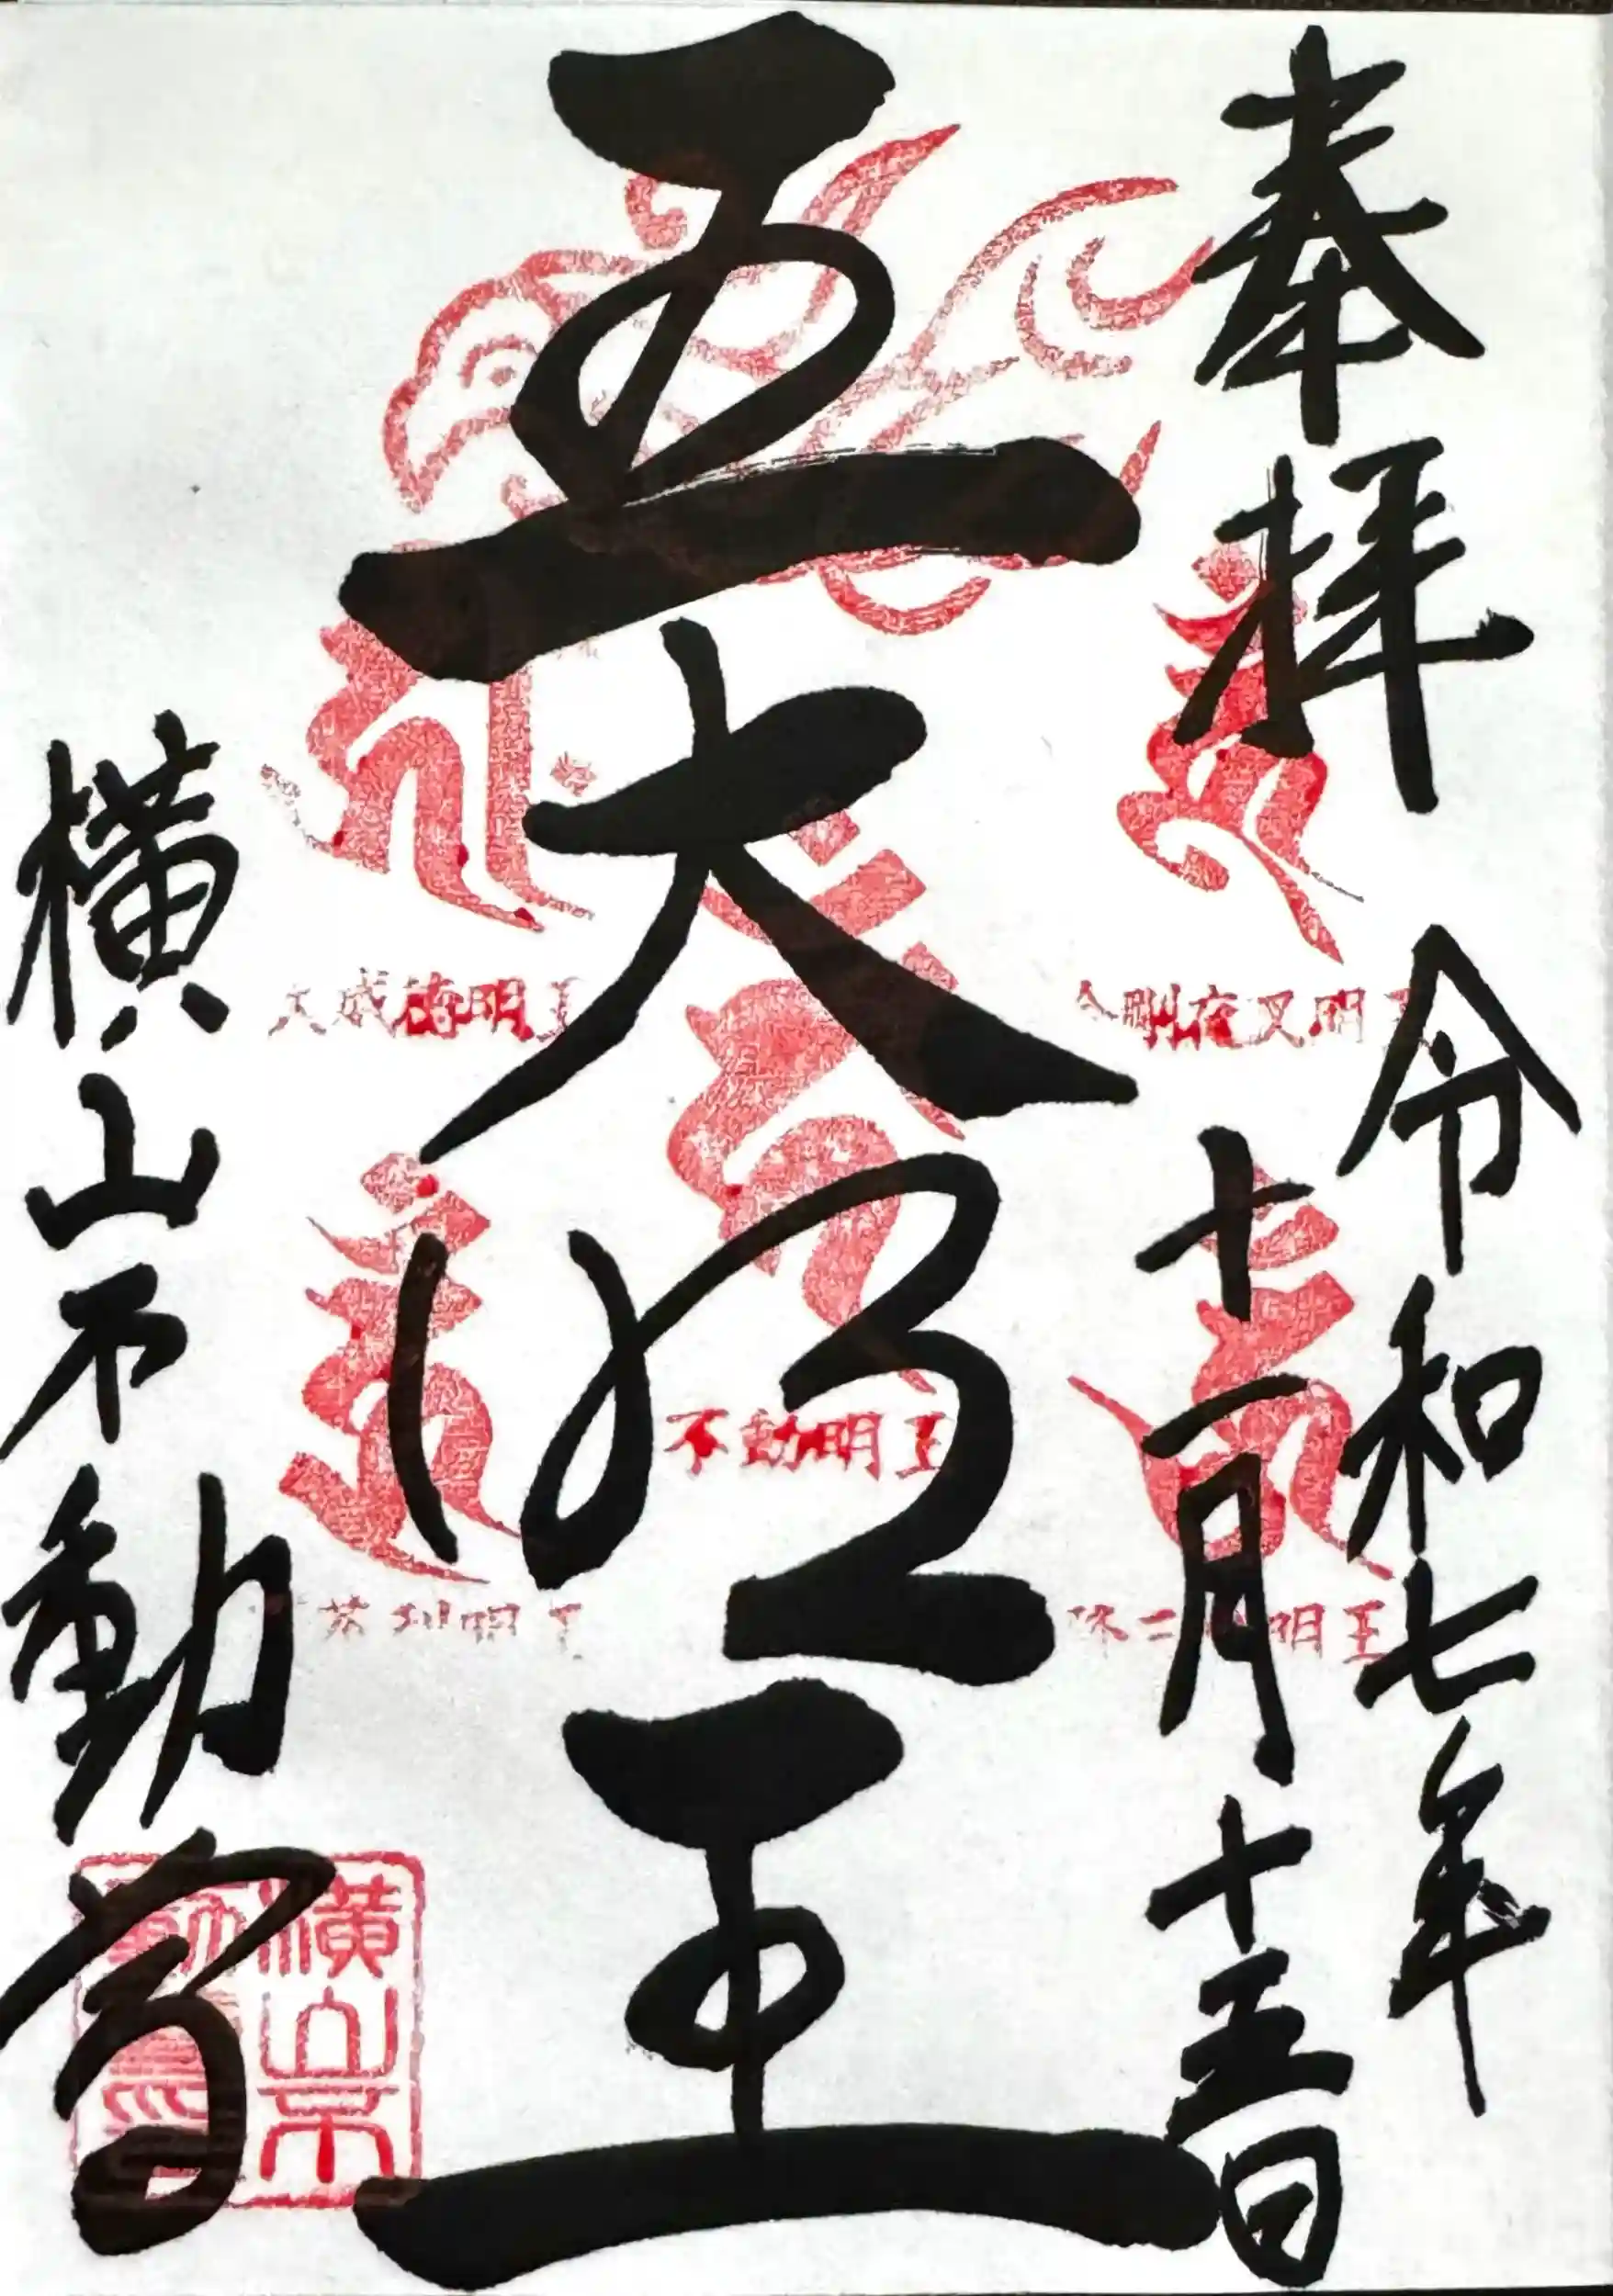 奉拝
令和七年
十一月十五日
五大明王
横山不動尊
金剛夜叉明王
大威徳明王
不動明王
茶利明王
三 明王
横山不
動尊